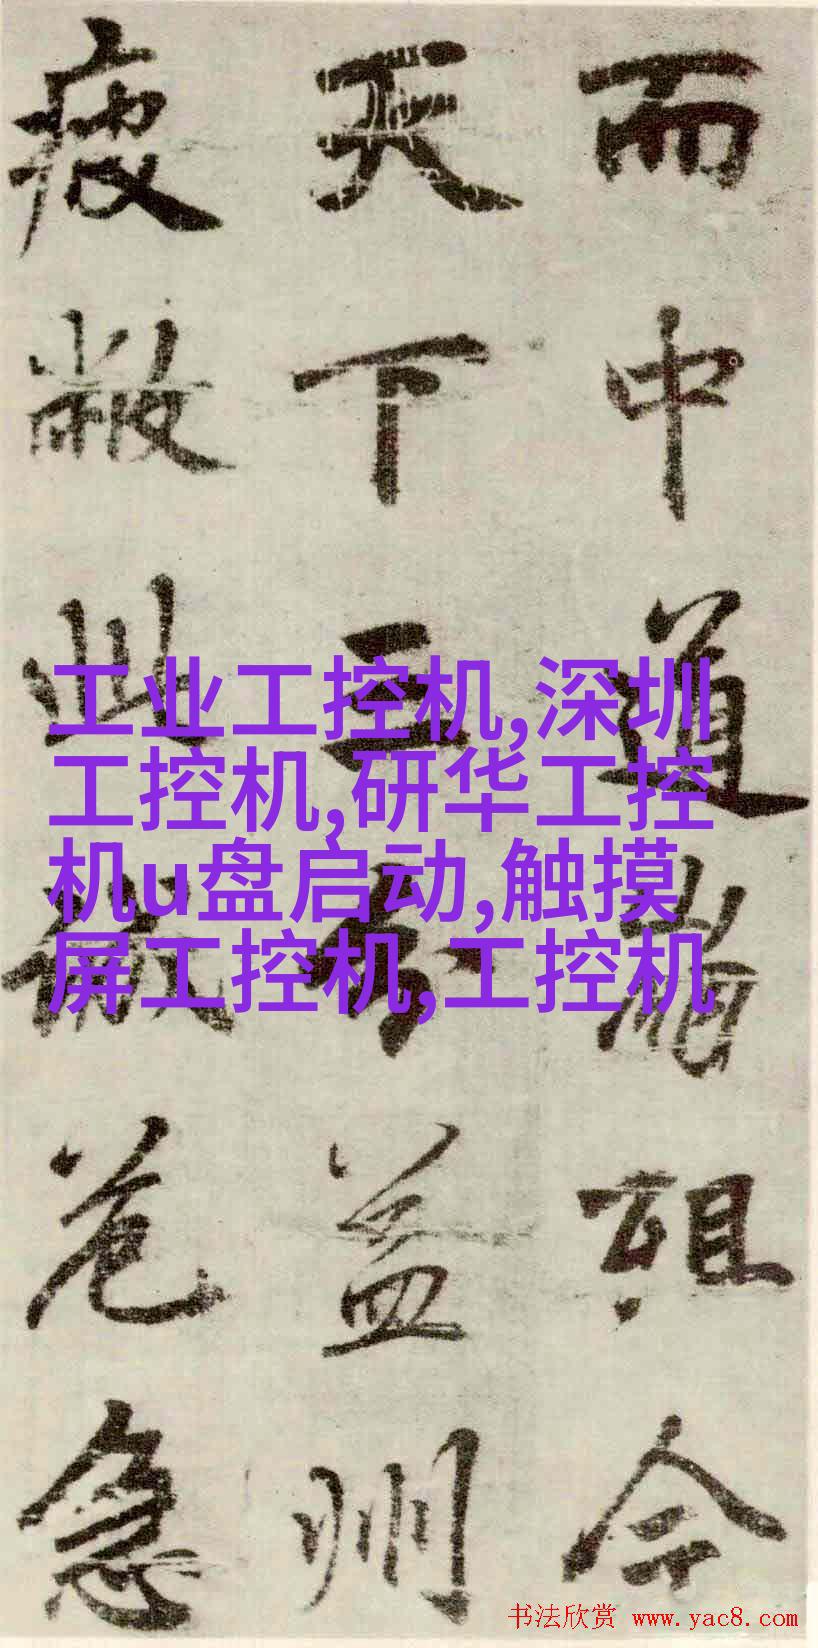 而中道崩殂今
天下三分益州
疲敝此誠危急
工业工控机,深圳
工控机,研华工控
机u盘启动,触摸
屏工控机,工控机
书法欣赏 www.yac8.com